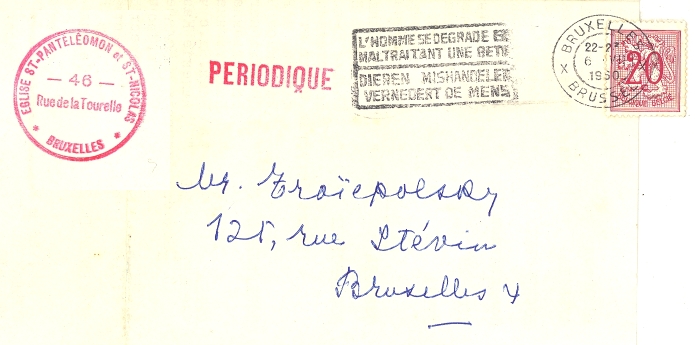 EGLISE ST-PANTELÉOMON et ST-NICOLAS
- 46 -
Rue de la Tourelle
* BRUXELLES *
PERIODIQUE
L'HOMME SE DEGRADE EN
MALTRAITANT UNE BETE
DIEREN MISHANDELEN
VERNEDERT DE MENS
BRUXELLES
22-2
6
X BRUSSEL
20
BELGIE
Mr. Troïepolsky
125, rue Stévin
Bruxelles 4